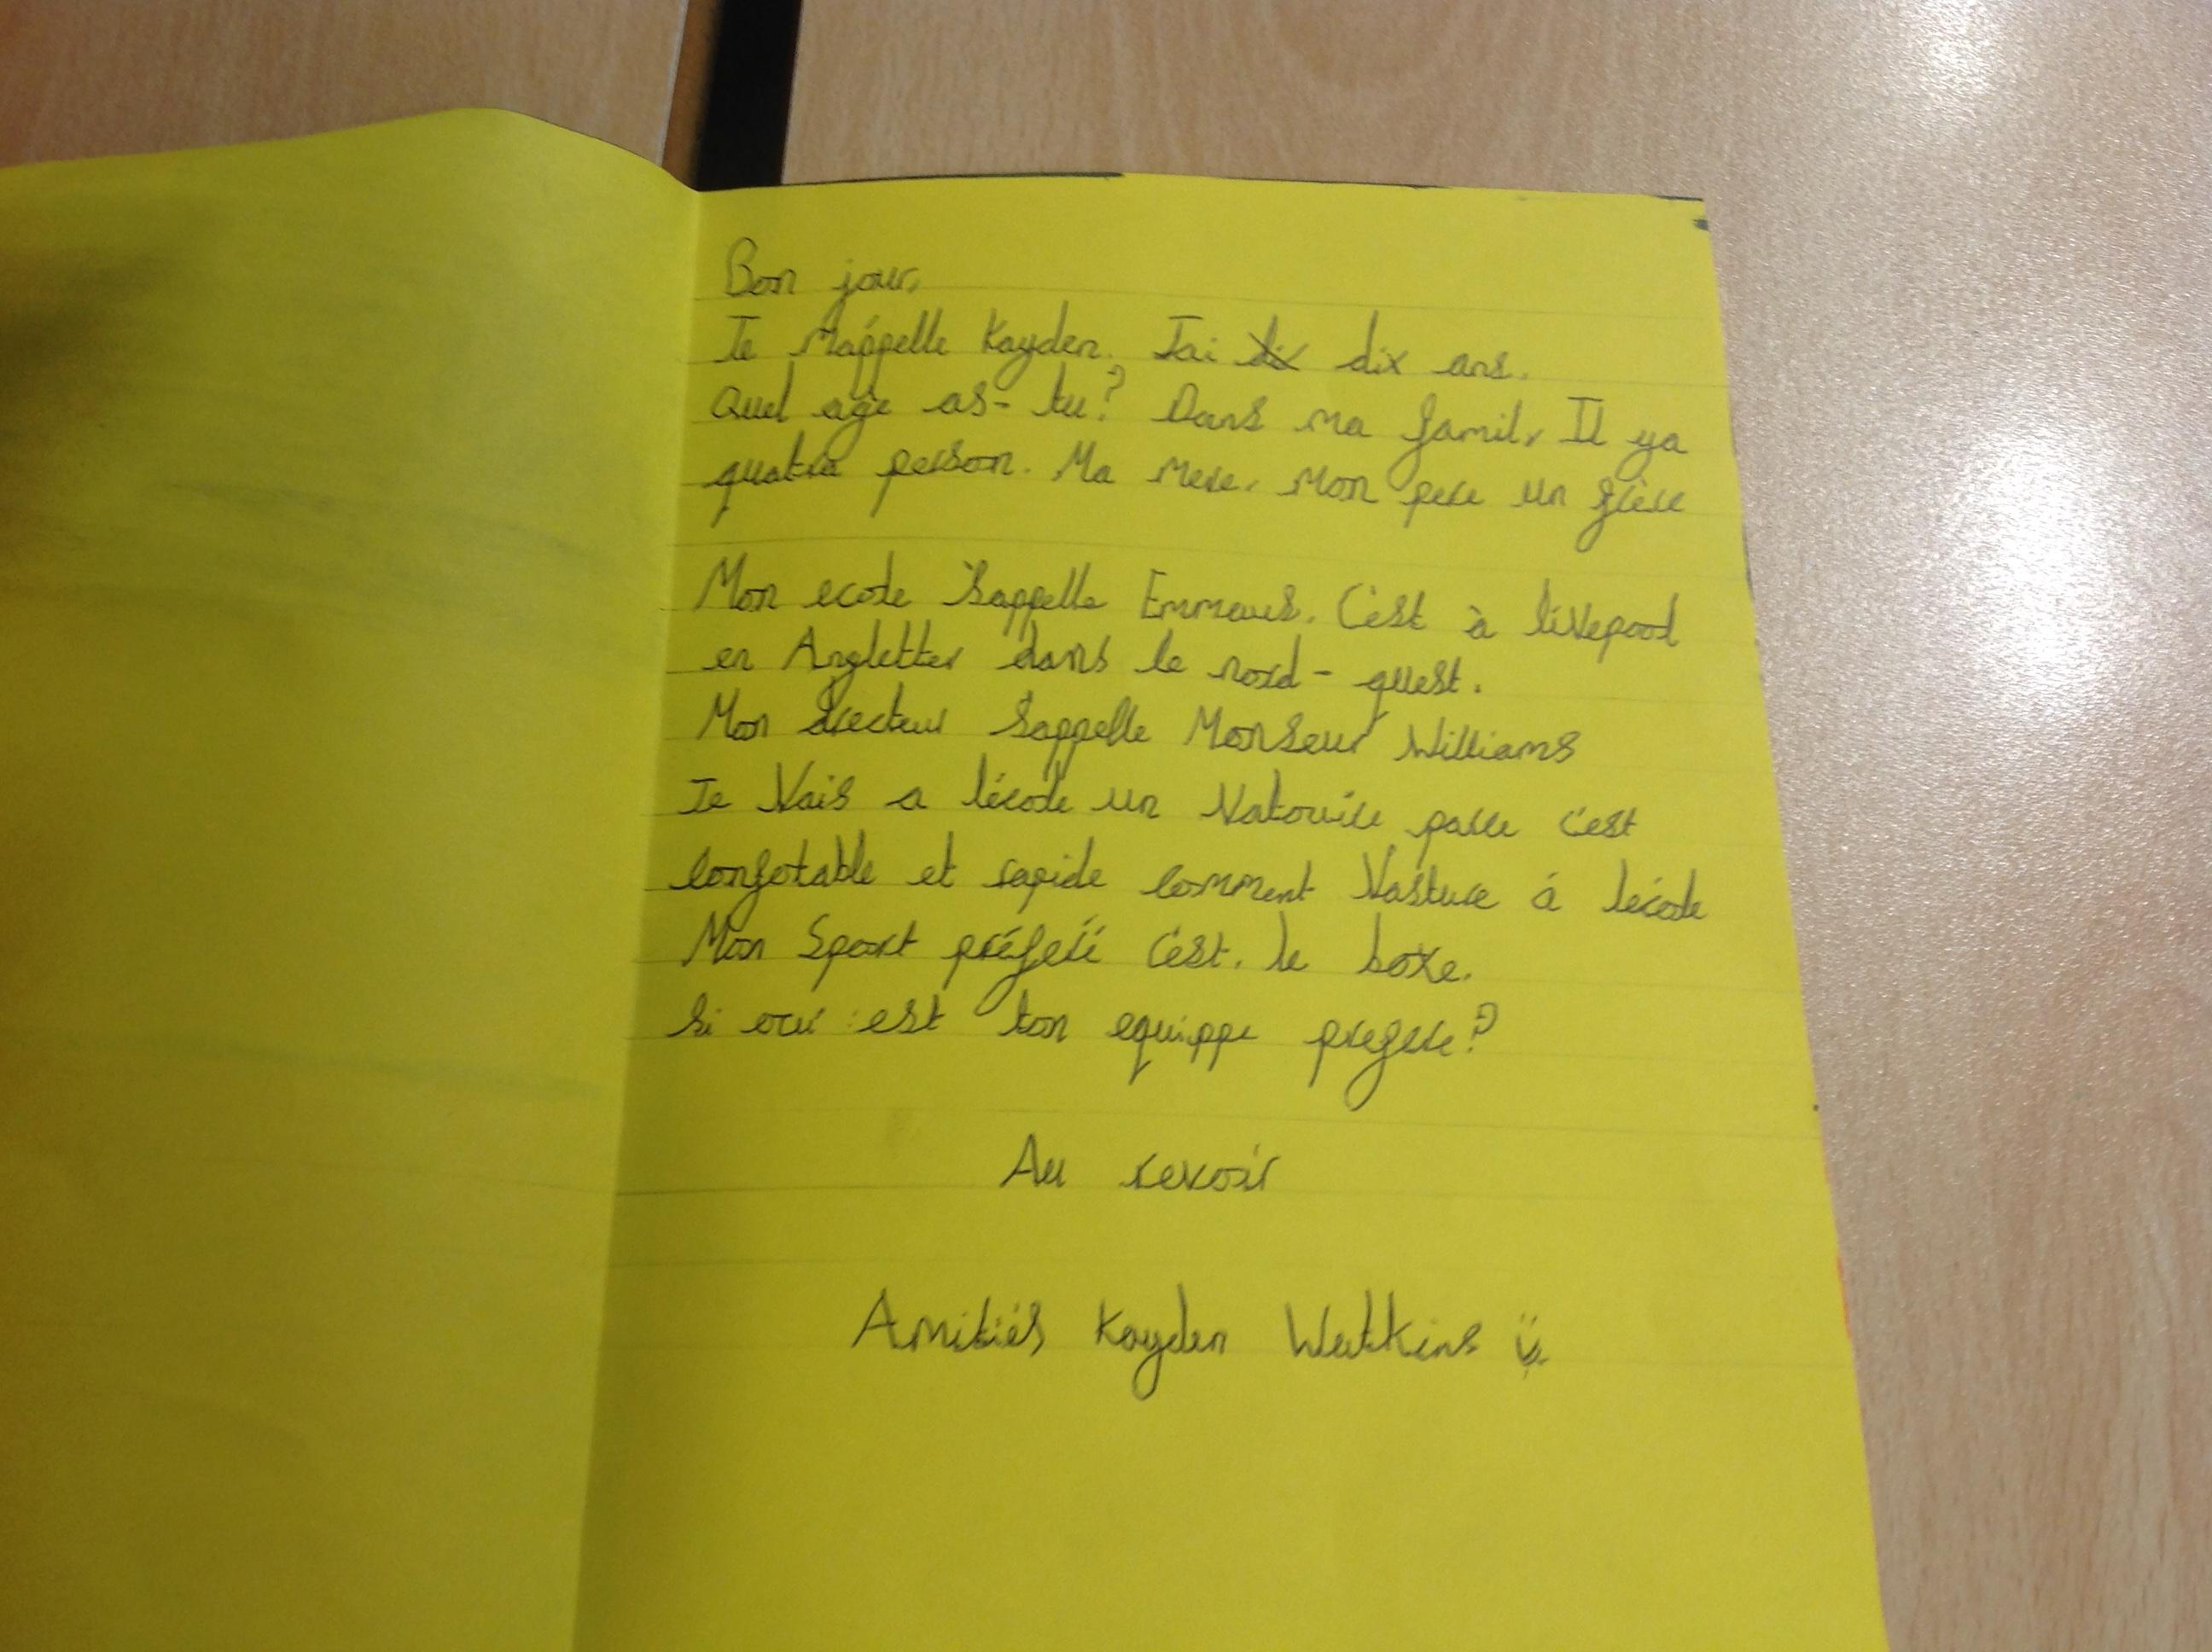 Bon jour,
Je M'appelle Kayden. J'ai dix dix ans.
Quel age as-tu? Dans ma famil, Il ya
quatre person. Ma mere, mon pere un frère
Mon ecole s'appelle Emmaus. C'est à liVepool
en Angletter dans le nord-quest.
Mon directeur s'appelle Monseur Williams
Je Vais a l'école un Vatouire parce c'est
confotable et rapide comment Vasture á l'école
Mon Sport préferé c'est. le boxe.
si oui est ton equippe prefere?
Au revoir
Amitiés Kayden Watkins